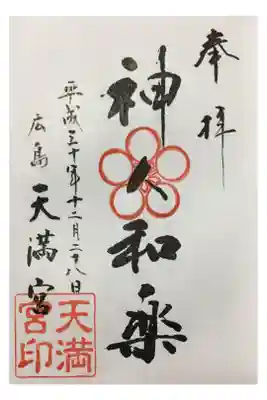 奉拝
神人和楽
平成三十年十二月二十八日
広島
天満宮
天満
宮印